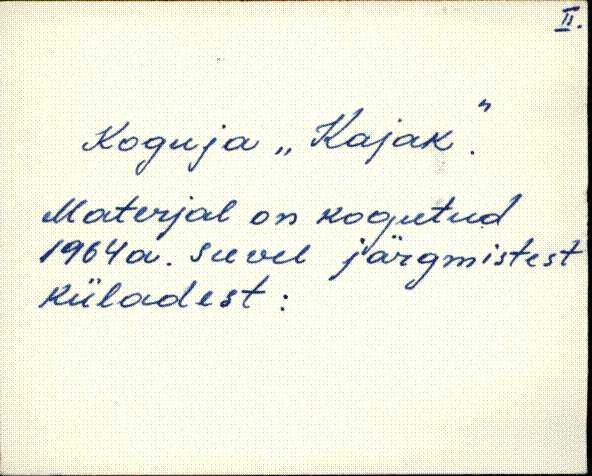 II.
Koguja „Kajak".
Materjal on kogutud
1964a. suvel järgmistest
küladest: